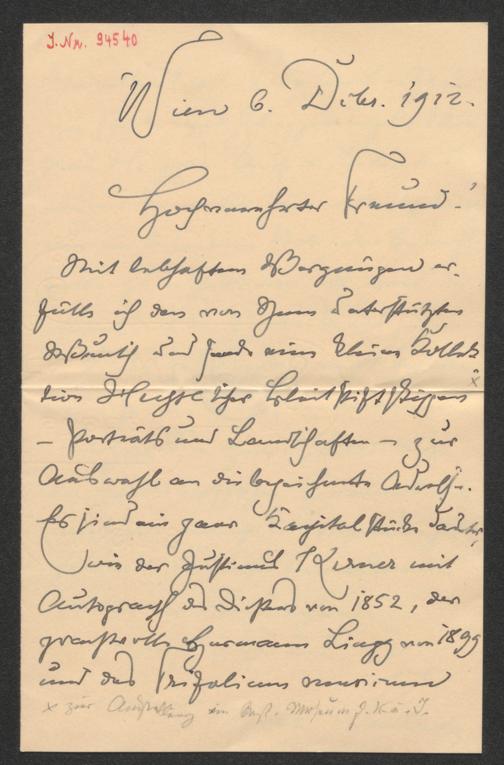 J. Nr. 94540
Wien 6. Dzbr. 1912.
Hochverehrter Freund!
Mit lebhaftem Vergnügen er-
fülle ich den von Ihnen unterstützten
Wunsch und sende eine kleine Kollek-
tion Hecht'scher Bleistiftskizzen x
– Porträts und Landschaften – zur
Auswahl an die bezeichnete Adresse.
Es sind ein paar Kapitalstücke darunter,
wie der Justinus Kerner mit
Autograph des Dichters von 1852, der
prachtvolle Hermann Lingg von 1899
und das Trifolium
x zur Ausstellung im Öst. Museum f. K. u. I.